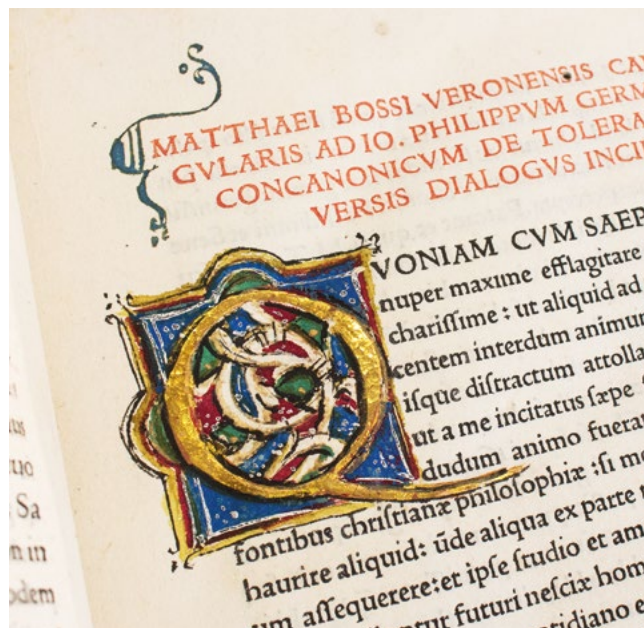 MATTHAEI BOSSI VERONENSIS CA
GVLARIS AD IO. PHILIPPVM GERM
CONCANONICVM DE TOLERA
VERSIS DIALOGVS INCI
QVONIAM CVM SAEP
nuper maxime efflagitare
chariſſime : ut aliquid ad
centem interdum animum
iſque diſtractum attolla
ut a me incitatus ſæpe
dudum animo fuerat
fontibus chriſtianæ philoſophiæ : ſi mo
haurire aliquid: ūde aliqua ex parte t
um aſſequerere: et ipſe ſtudio et am
futuri neſciæ hom
tidiano e
uo
Sa
n in
odem